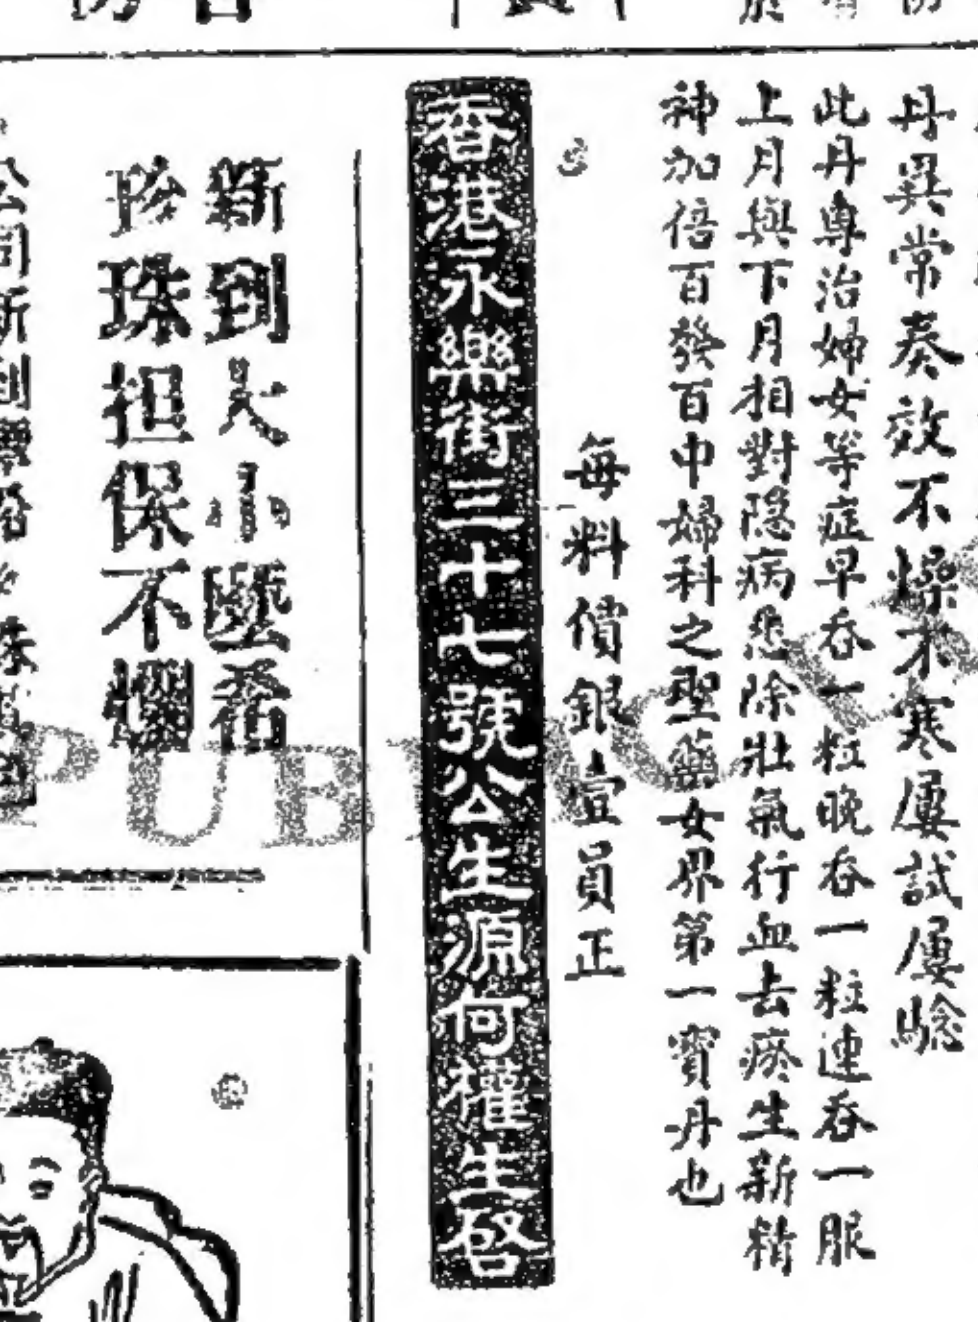 丹異常奏效不燥不寒屢試屢驗
此丹專治婦女等症早吞一粒晚吞一粒連吞一服
上月與下月相對隱病悉除壯氣行血去瘀生新精
神加倍百發百中婦科之聖藥女界第一寶丹也
每料價銀壹員正
香港永樂街三十七號公生源何權生啓
新到大小墜喬
珍珠担保不爛
PUBLIC